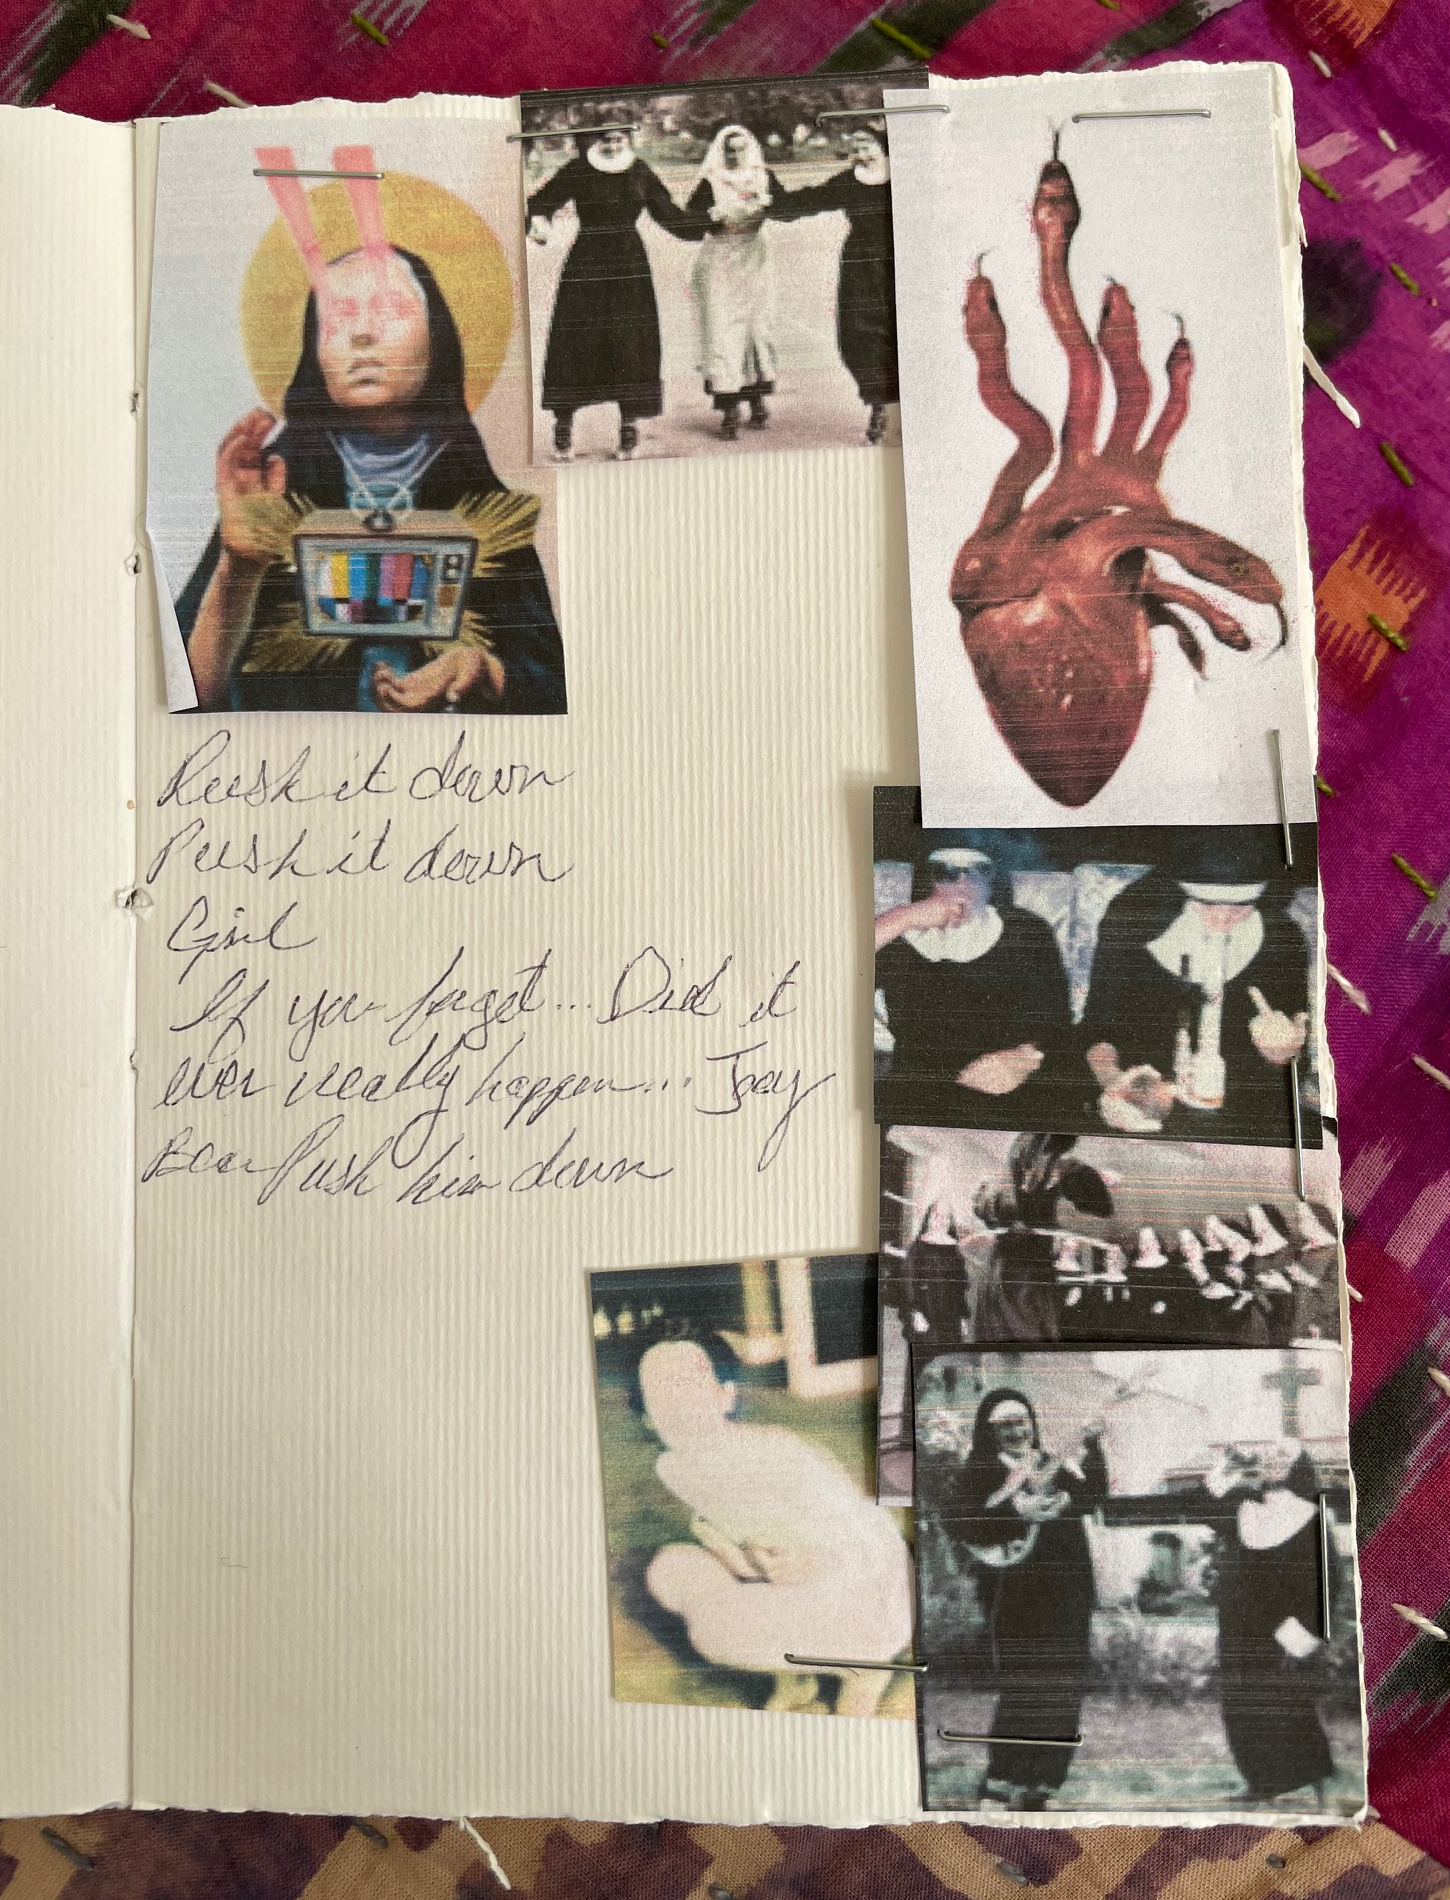 Push it down
Push it down
Girl
If you forget... Did it
ever really happen... Joey
Bear Push him down